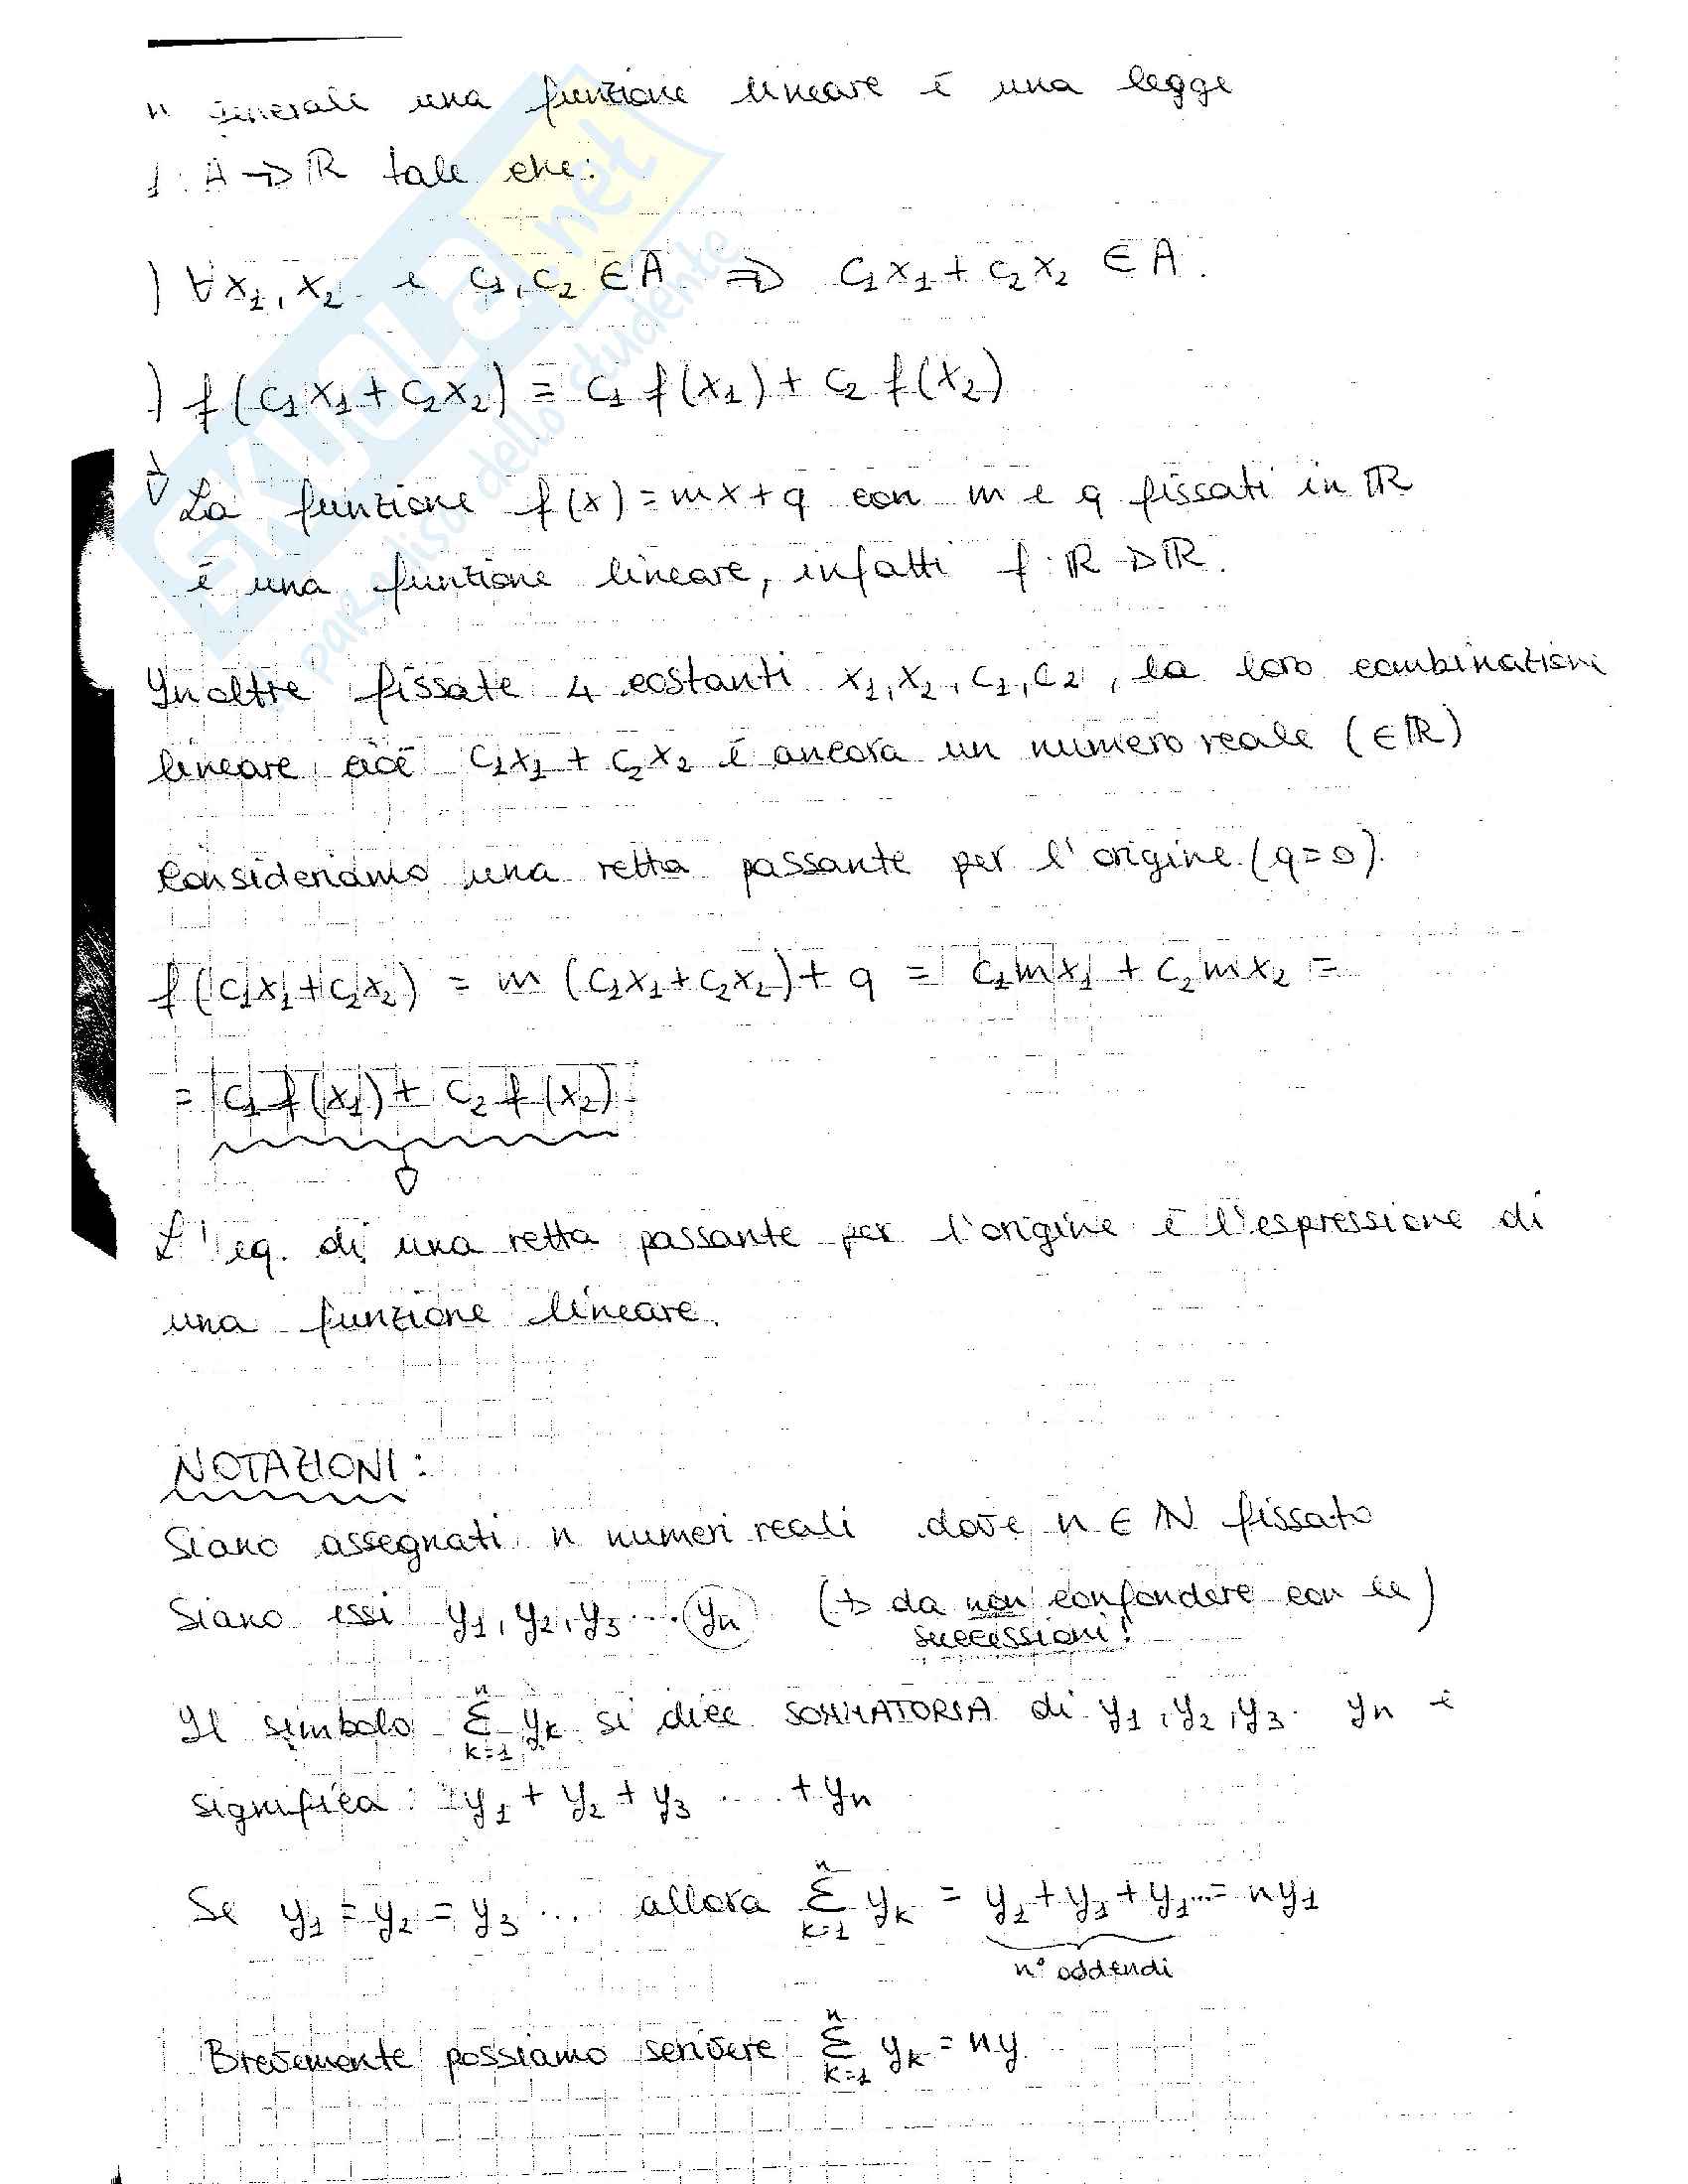 n generale una funzione lineare è una legge
f : A → ℝ tale che:
) ∀ x₁, x₂ e c₁, c₂ ∈ A ⇒ c₁x₁ + c₂x₂ ∈ A.
) f(c₁x₁ + c₂x₂) = c₁ f(x₁) + c₂ f(x₂)
La funzione f(x) = mx + q con m e q fissati in ℝ
è una funzione lineare, infatti f : ℝ → ℝ.
Inoltre fissate 4 costanti x₁, x₂, c₁, c₂, la loro combinazione
lineare, cioè c₁x₁ + c₂x₂ è ancora un numero reale (∈ ℝ)
Consideriamo una retta passante per l'origine (q=0).
f(c₁x₁ + c₂x₂) = m (c₁x₁ + c₂x₂) + q = c₁mx₁ + c₂mx₂ =
= c₁ f(x₁) + c₂ f(x₂)
L'eq. di una retta passante per l'origine è l'espressione di
una funzione lineare.
NOTAZIONI:
Siano assegnati n numeri reali dove n ∈ ℕ fissato
Siano essi y₁, y₂, y₃ ... yₙ (→ da non confondere con le)
successioni!
Il simbolo Σₖ₌₁ⁿ yₖ si dice SOMMATORIA di y₁, y₂, y₃. yₙ e
significa: y₁ + y₂ + y₃ .... + yₙ
Se y₁ = y₂ = y₃ ... allora Σₖ₌₁ⁿ yₖ = y₁ + y₁ + y₁... = ny₁
n° addendi
Brevemente possiamo scrivere Σₖ₌₁ⁿ yₖ = ny
SKUOLA.net
paradiso dello studente